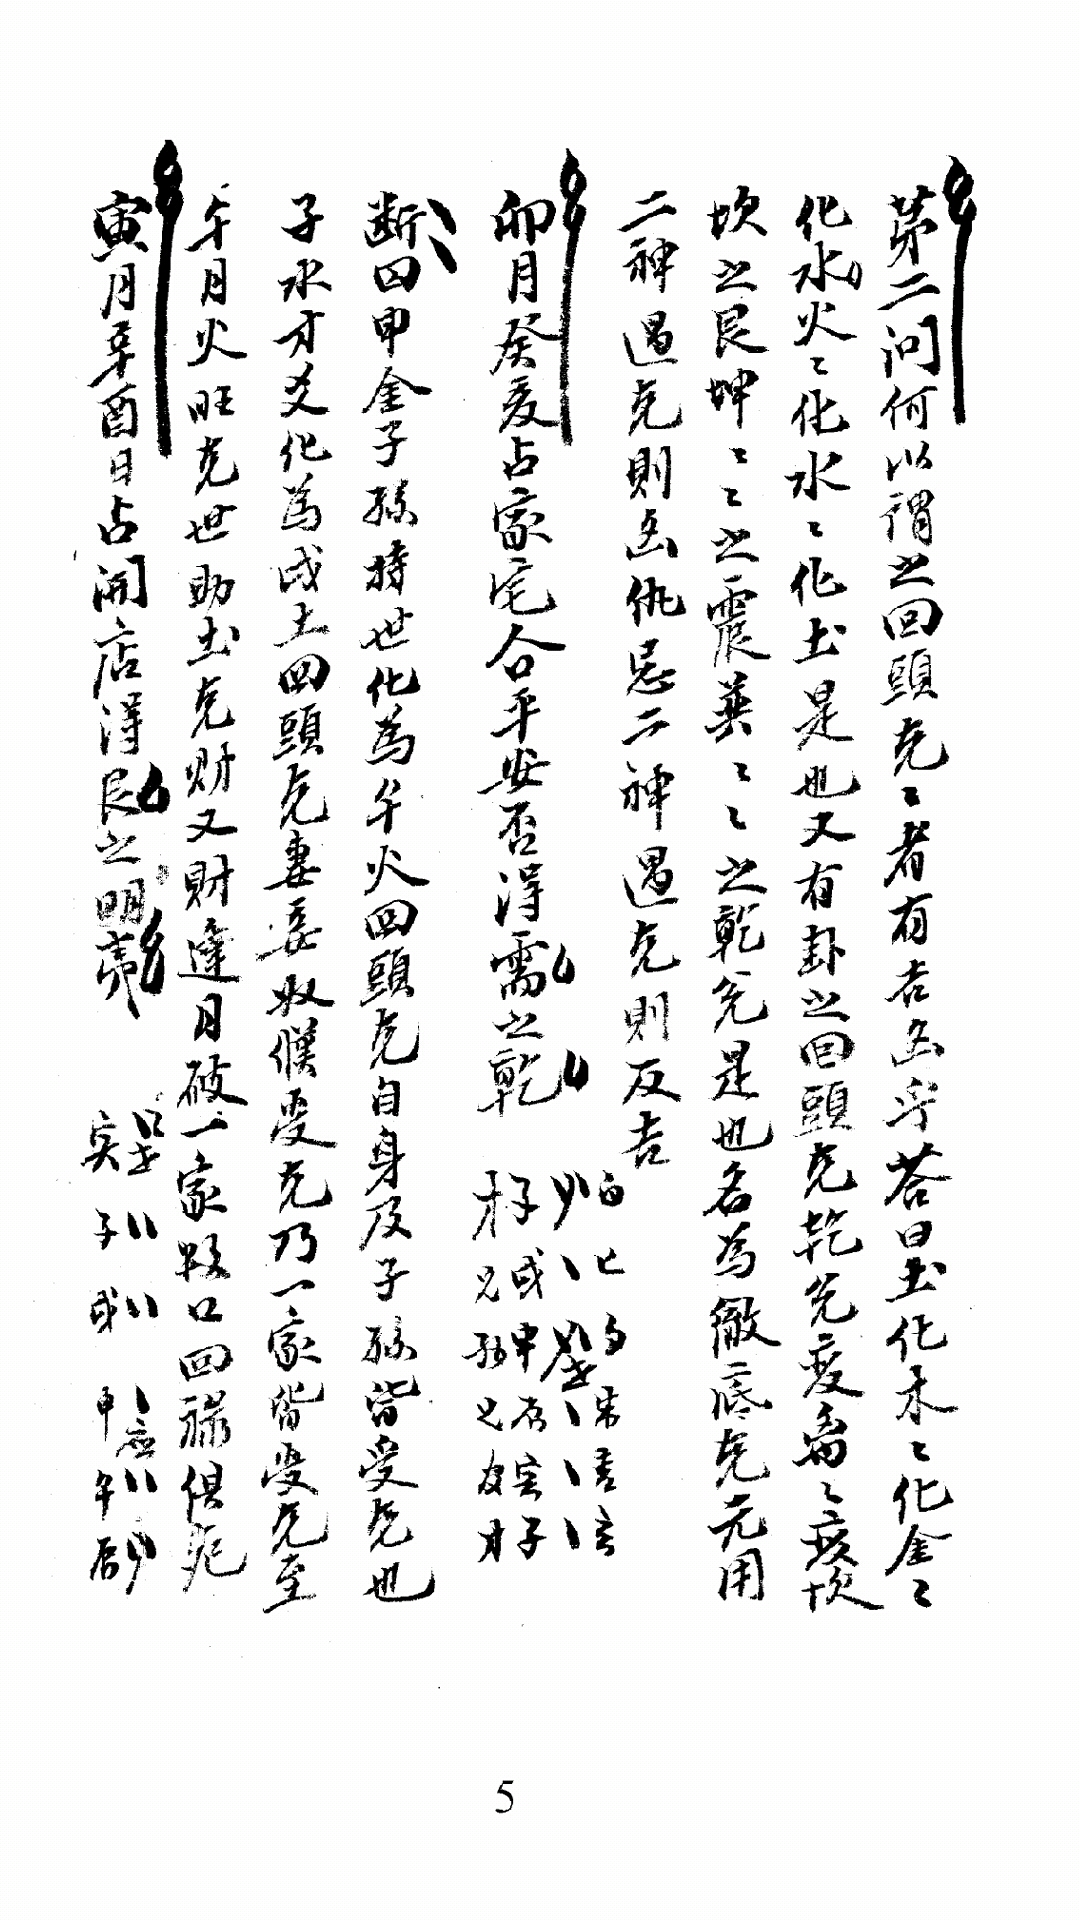 第二问何以謂之回頭克〻者有吉凶乎答曰土化木〻化金〻
化水火〻化水〻化土是也又有卦之回頭克乾兌变离〻
坎之艮坤〻〻之震巽〻〻之乾兌是也名为徹底克元用
二神遇克則凶仇忌二神遇克則反吉
卯月癸亥占家宅合平安否得需之乾
才子
兄戌
孙申
兄辰
寅
才子
断曰申金子孫持世化為午火回頭克自身及子孫皆受克也
子水才爻化為戌土回頭克妻妾奴僕受克乃一家皆受克至
午月火旺克世助土克财又财逢月破一家数口回祿俱死
寅月辛酉日占開店得艮之明夷
寅世
子
戌
申应
午
辰
5